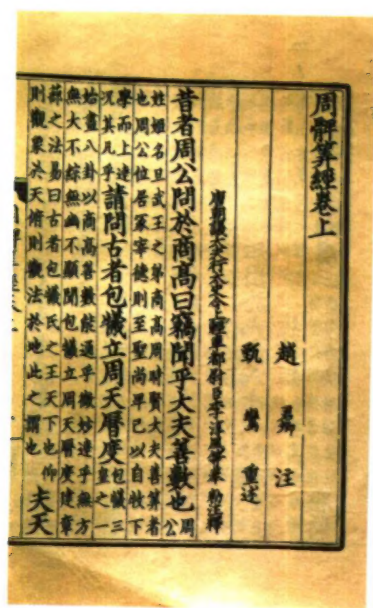 周髀算經卷上
趙君卿注
甄鸞重述
唐朝議大夫行太史令上輕車都尉臣李淳風等奉 勅注釋
昔者周公問於商高曰竊聞乎大夫善數也周公
姓姬名旦武王之弟商高周時賢大夫善算者
也周公位居冢宰德則至聖尚卑己以自牧下
學而上達況其凡乎請問古者包犧立周天曆度包犧三皇之一
始畫八卦以商高善數能通乎微妙達乎無方
無大不綜無幽不顯聞包犧立周天曆度建章
蔀之法易曰古者包犧氏之王天下也仰
則觀象於天俯則觀法於地此之謂也 夫天